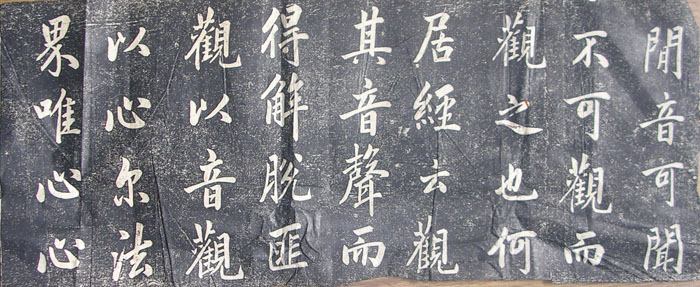 間音可聞
不可觀而
觀之也何
居經云觀
其音聲而
得解脫匪
觀以音觀
以心尔法
界唯心心